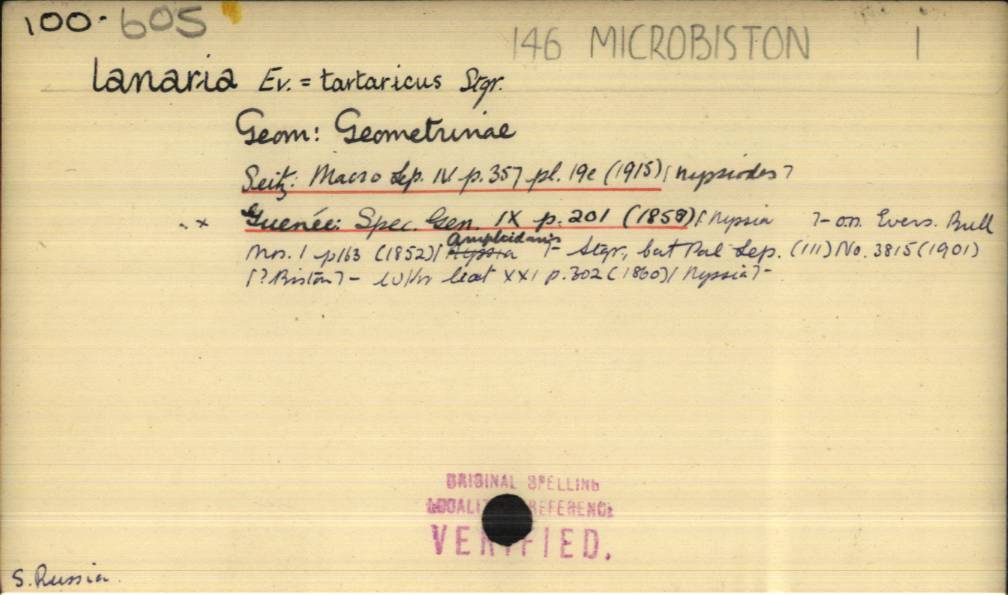 100. 605
146 MICROBISTON 1
lanaria Ev. = tartaricus Stgr.
Geom: Geometrinae
Seitz: Macro Lep. IV p. 357 pl. 19e (1915) [nyssiodes]
.. x Guenée: Spec. Gen. IX p. 201 (1858) [Nyssia ]- on. Evers. Bull
Mos. 1 p163 (1852) [Amphidasis ]- Stgr., Cat Pal Lep. (111) No. 3815 (1901)
[? Biston]- XXI p. 302 (1860) [Nyssia]-
ORIGINAL SPELLING
REFERENCE
VERIFIED.
S. Russia.